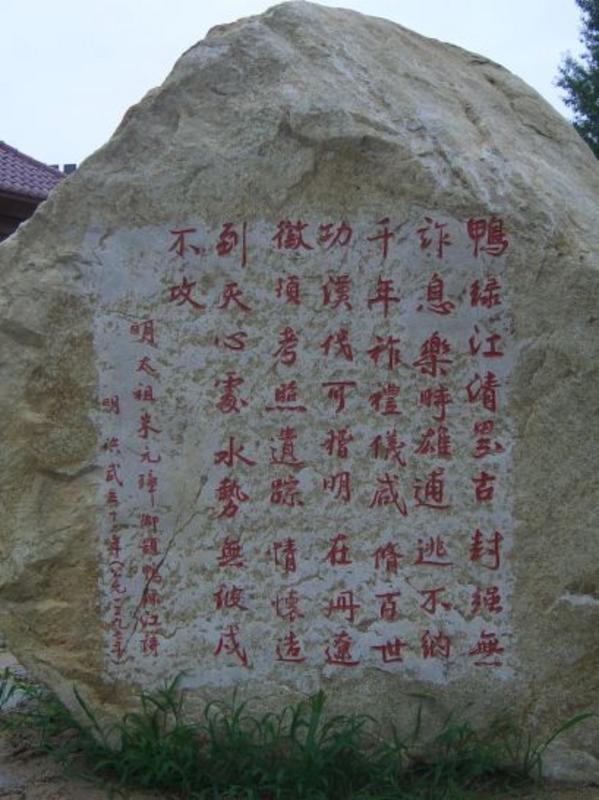 鴨绿江清界古封强無
詐息樂時雄逋逃不納
千年祚禮儀咸脩百世
功漢伐可稽明在冊遼
徵須考照遺踪情懷造
到天心處水勢無波戍
不攻
明太祖朱元璋御題鴨绿江詩
明洪武三十年(公元一三九七年)